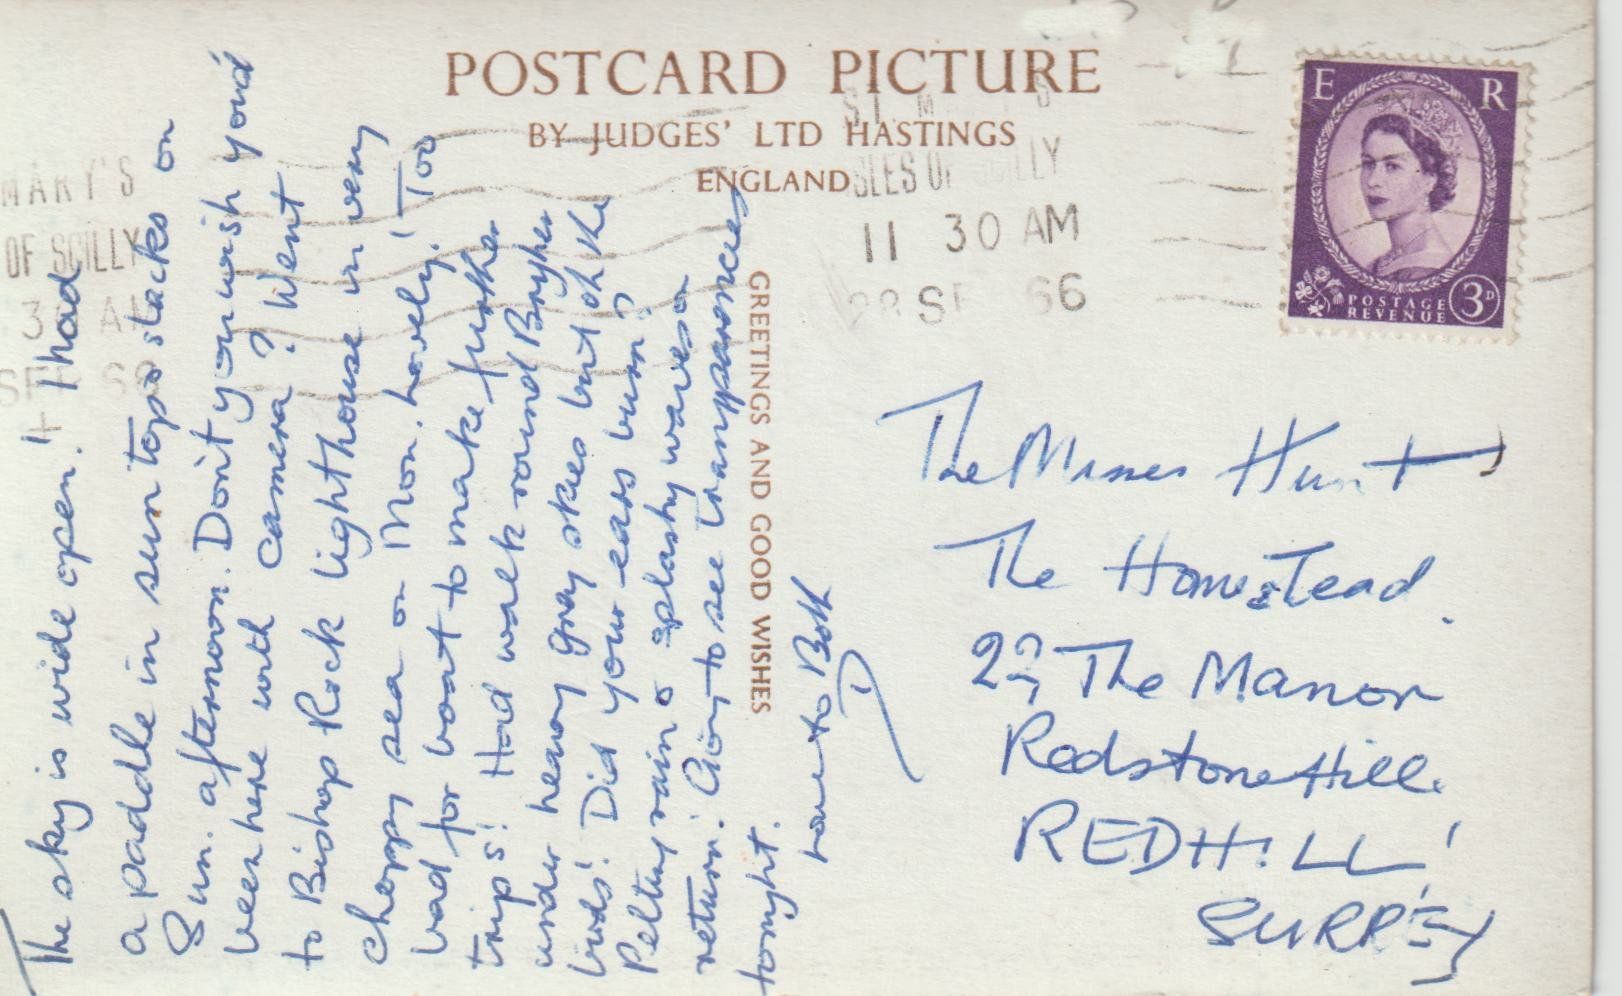 POSTCARD PICTURE
BY JUDGES' LTD HASTINGS
ENGLAND
GREETINGS AND GOOD WISHES
MARY'S
OF SCILLY
ST. M S
ISLES OF SCILLY
11 30 AM
28 SE 66
E R
POSTAGE
REVENUE
3D
The sky is wide open! I had
a paddle in sun top + slacks on
Sun. afternoon. Don't you wish you'd
been here with camera? Went
to Bishop Rock lighthouse in very
choppy sea on Mon. Lovely! Too
bad for boat to make further
trips! Had walk round Bryher
under heavy gray skies but oh the
birds! Did your ears burn?
Pelting rain & splashy waves on
return. Going to see transparencies
tonight.
Love to Both
D
The Misses Hunt
The Homestead.
The Manor
Redstone Hill.
REDHILL
SURREY